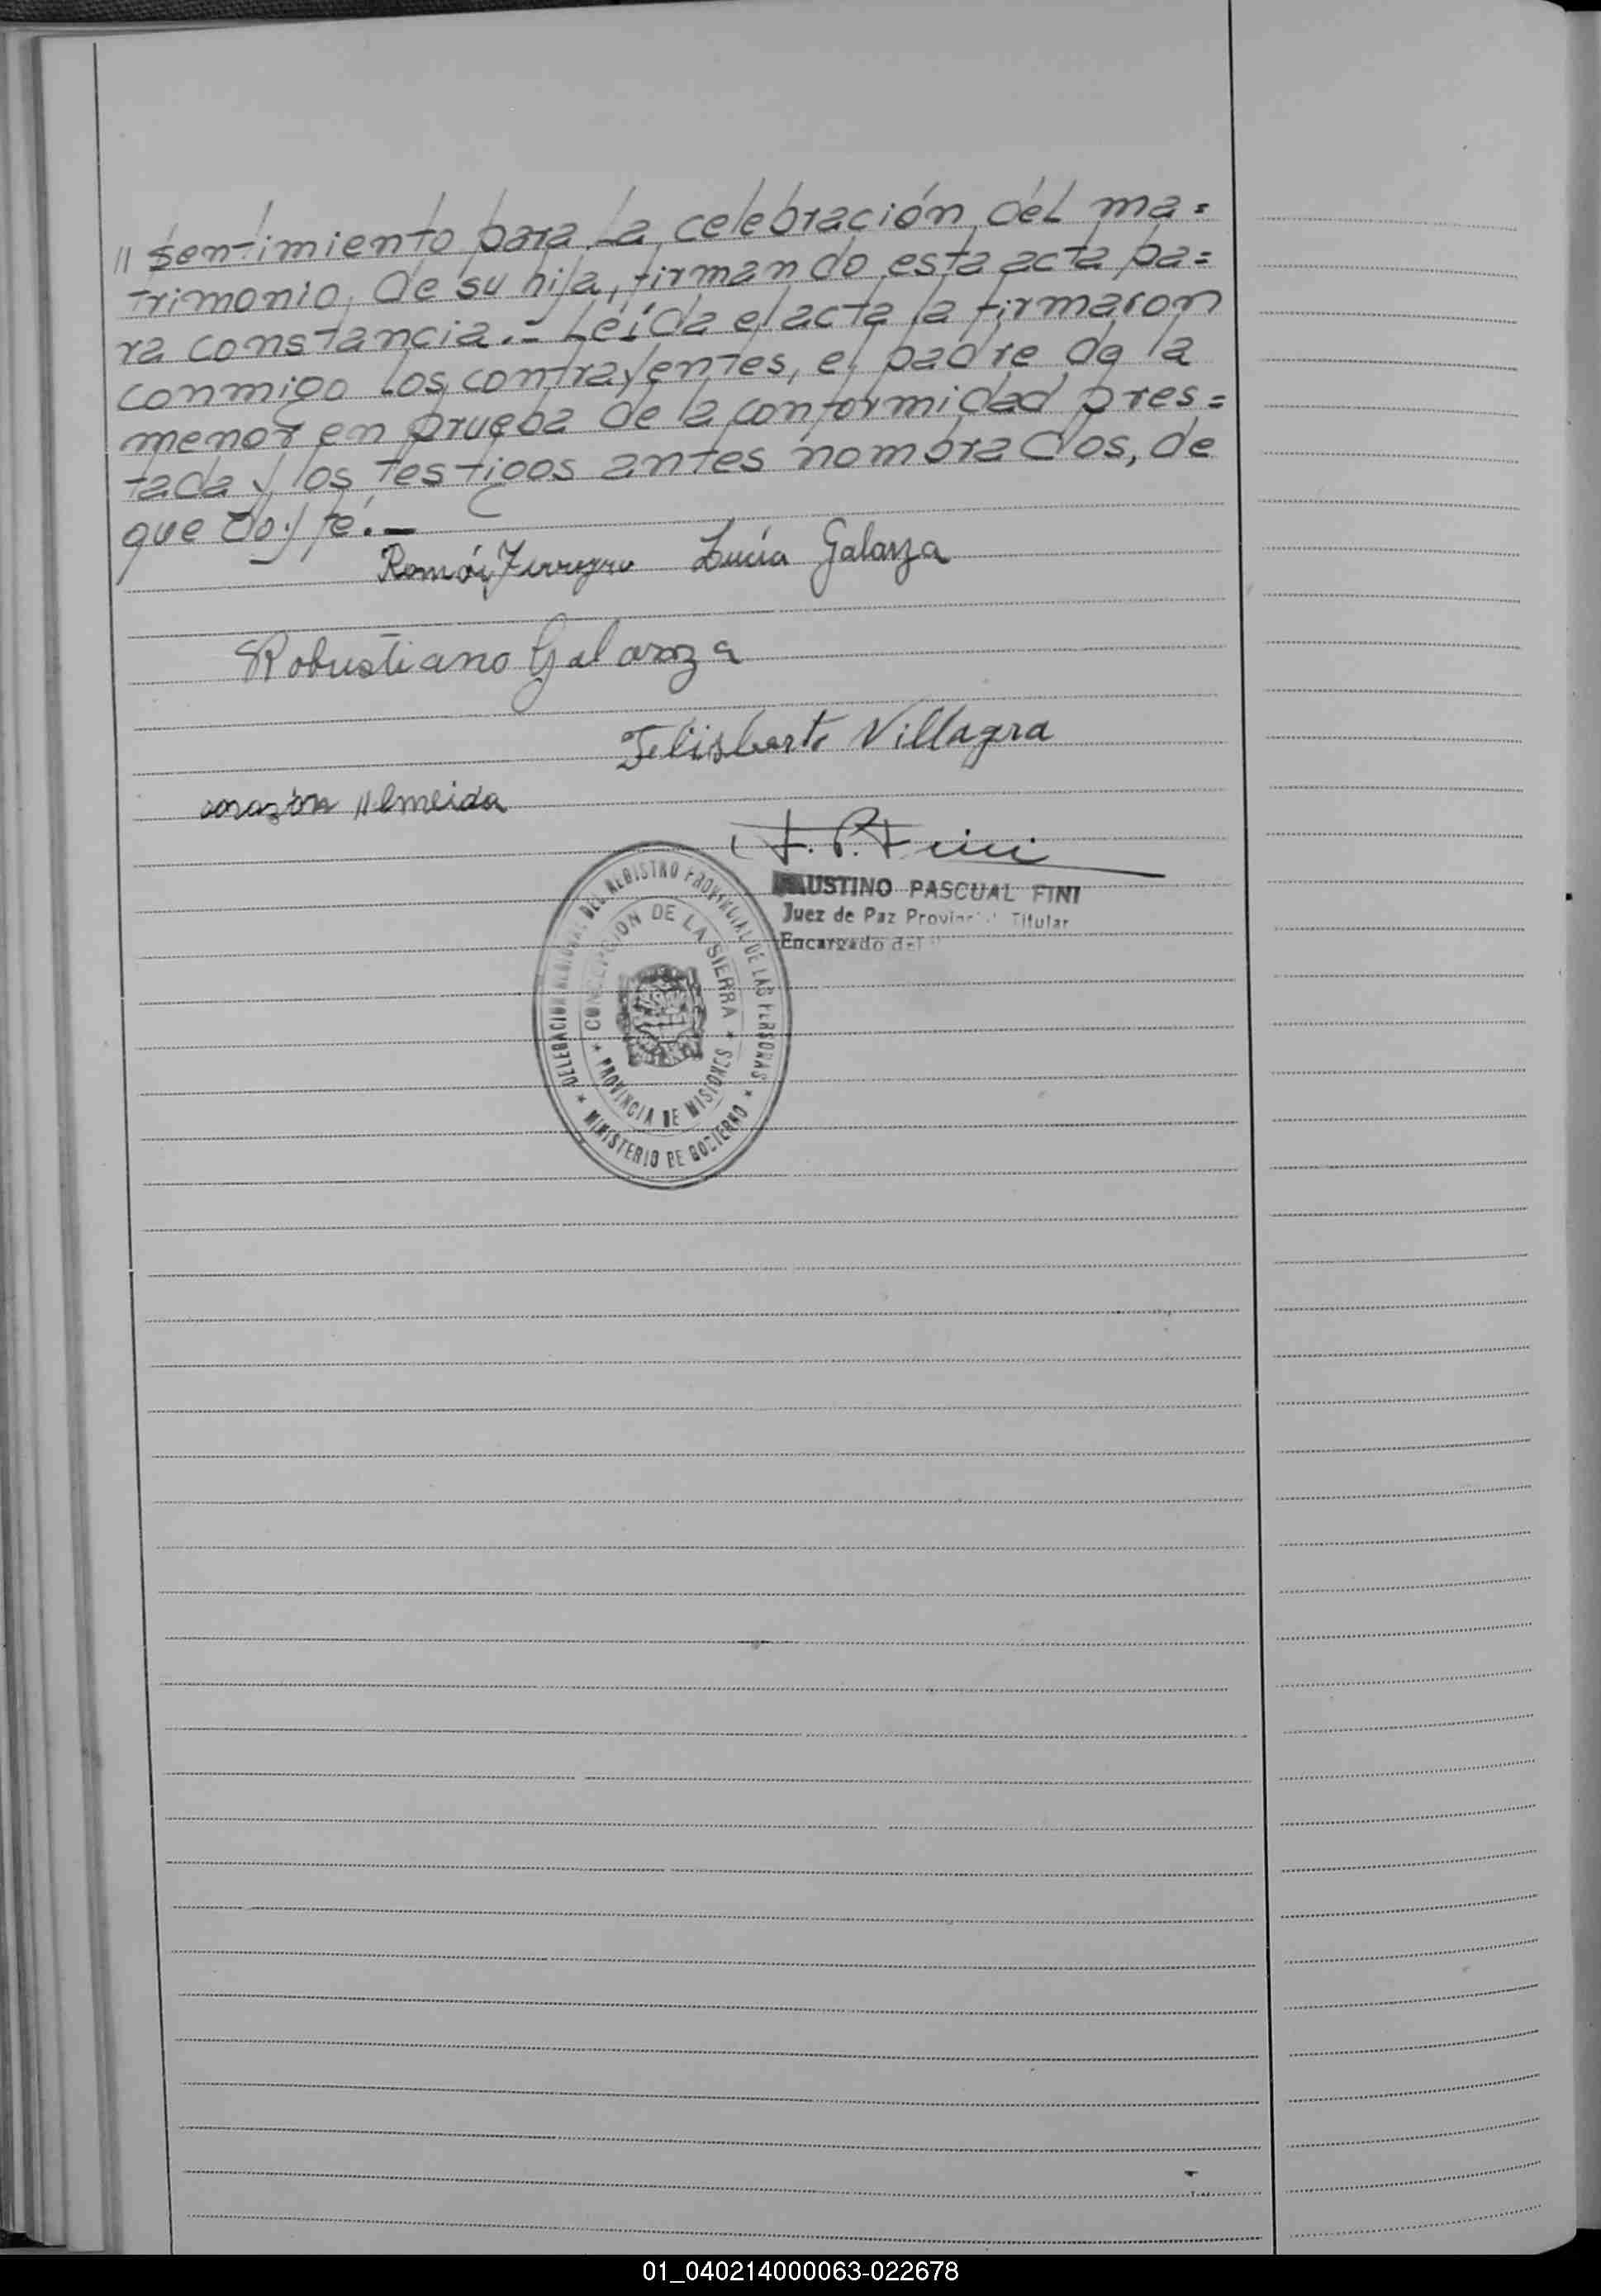 " sentimiento para la celebración del ma=
trimonio, de su hija, firmando esta acta pa=
ra constancia.- Leída el acta la firmaron
conmigo los contrayentes, el padre de la
menor en prueba de la conformidad pres=
tada y los testigos antes nombrados, de
que doy fé.-
Lucía Galarza
Robustiano Galarza
Felisberto Villagra
Almeida
F. P. Fini
FAUSTINO PASCUAL FINI
Juez de Paz Provincial Titular
Encargado del
DELEGACION DEL REGISTRO PROVINCIAL DE LAS PERSONAS
* MINISTERIO DE GOBIERNO *
CONCEPCION DE LA SIERRA
* PROVINCIA DE MISIONES *
01_040214000063-022678